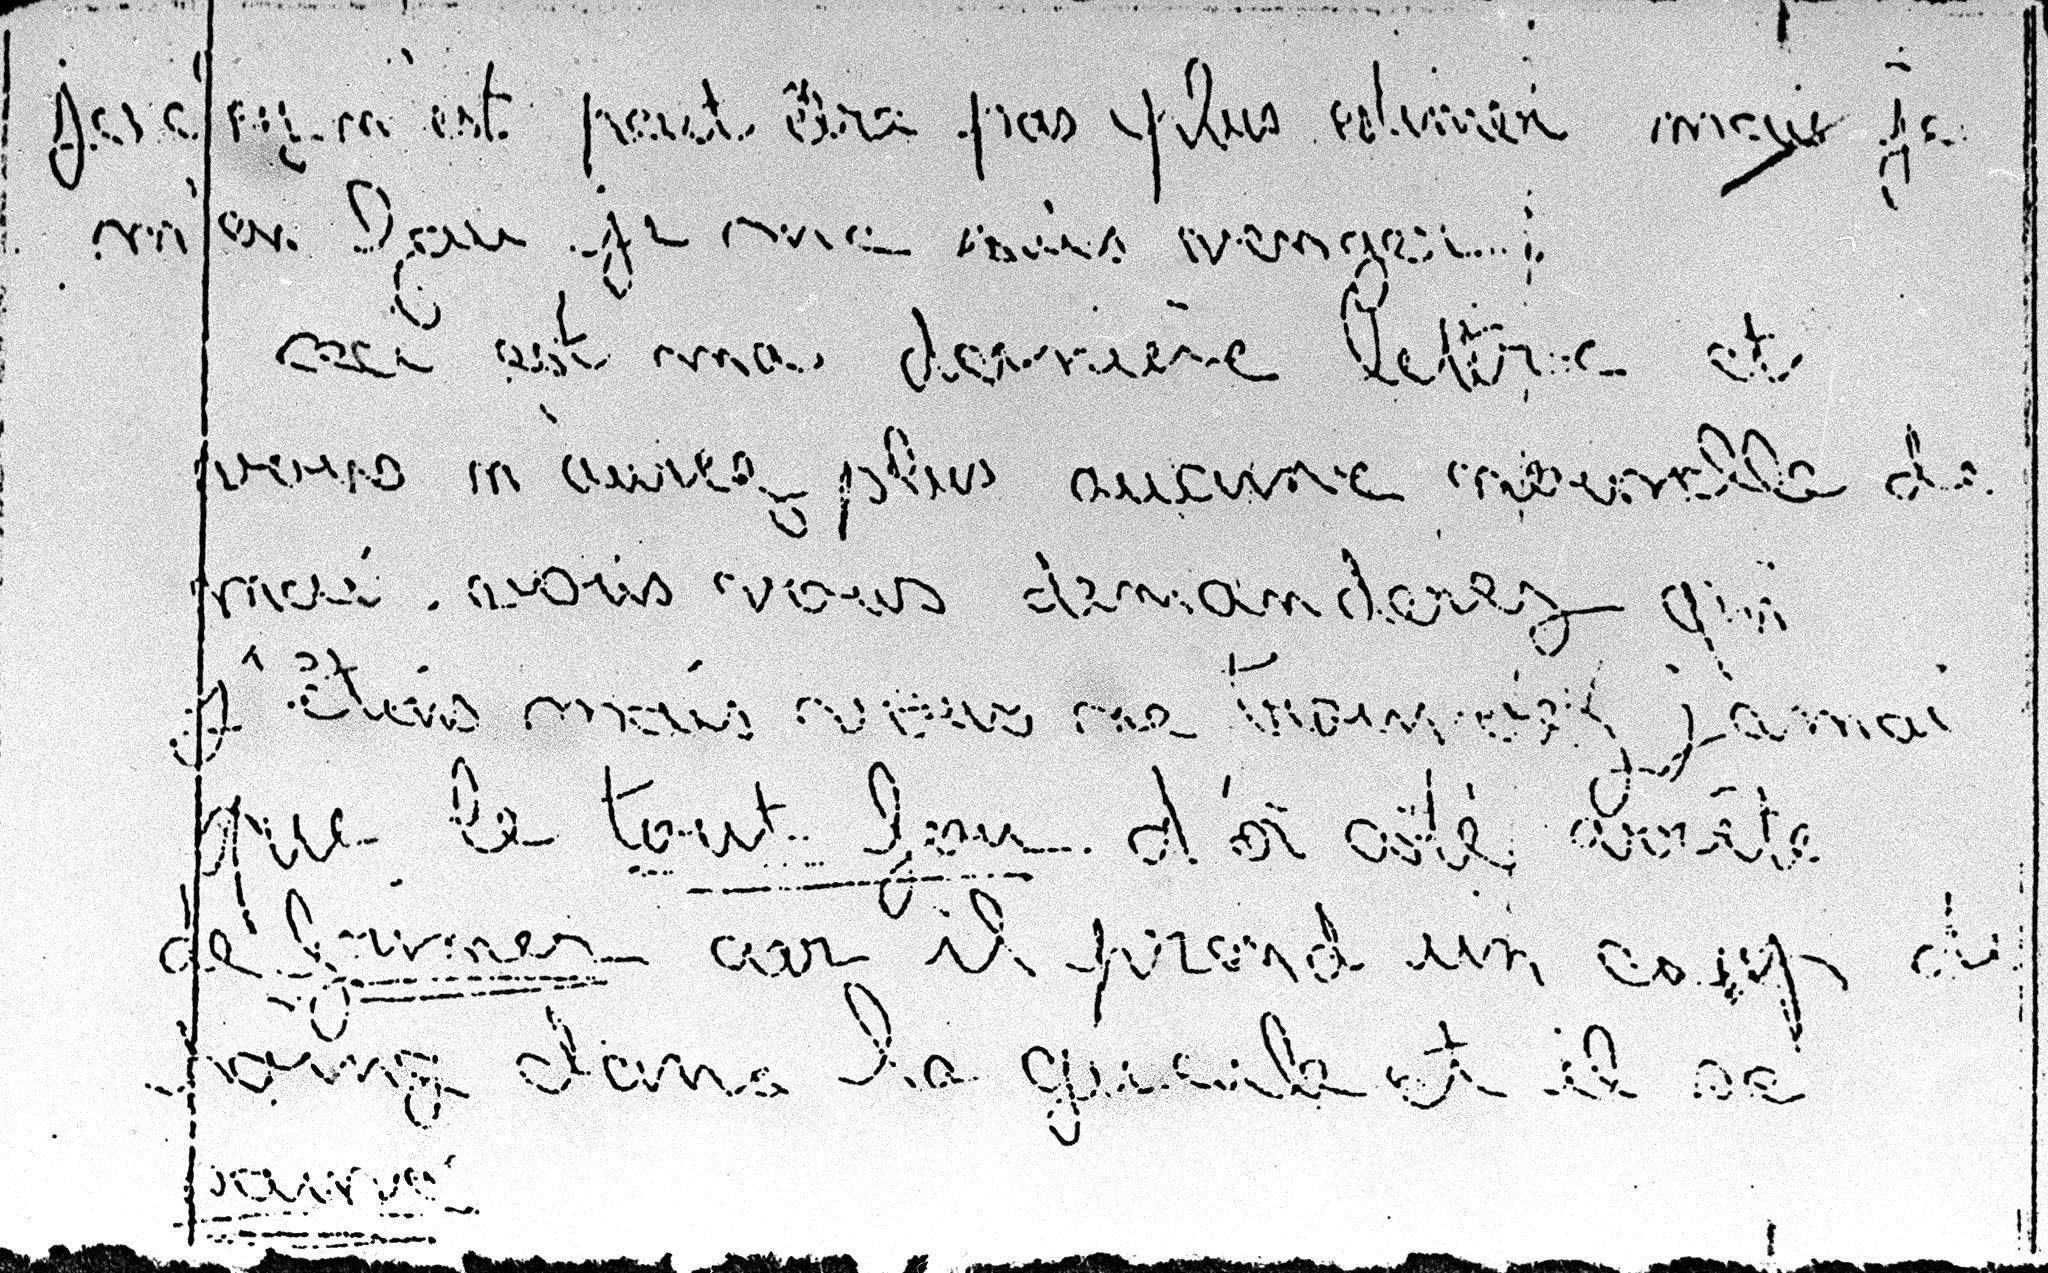 Jacky n'est peut être pas plus estimer mais je
m'en fou je me suis venger.
ceci est ma dernière lettre et
vous n'aurez plus aucune nouvelle de
moi. vous vous demanderez qui
j'étais mais vous ne trouverez jamai
que le tout fou d'a côté arrête
de frimer car il prend un coup de
poing dans la gueule et il se
sauve